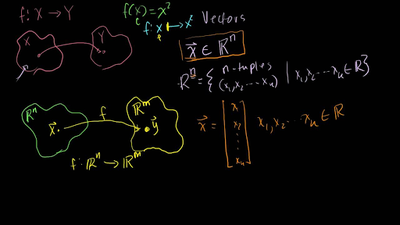 f: X → Y
f(x) = x²
f: x ↦ x²
Vectors
x⃗ ∈ ℝⁿ
X
Y
ℝⁿ = { n-tuples (x₁, x₂ ⋯ xₙ) | x₁, x₂ ⋯ xₙ ∈ ℝ }
ℝⁿ
x⃗
f
ℝᵐ
y⃗
f: ℝⁿ → ℝᵐ
x⃗ = [ x₁
x₂
⋮
xₙ ]
x₁, x₂ ⋯ xₙ ∈ ℝ